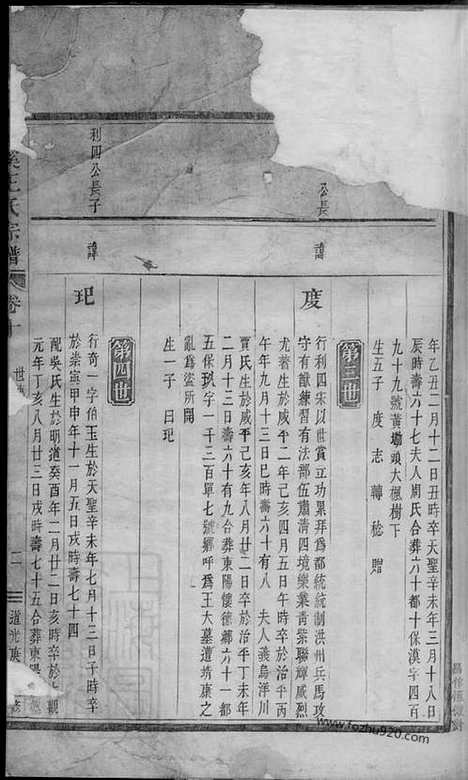 年乙丑二月十二日丑時卒天聖辛未年三月十八日
辰時壽六十七夫人周氏合葬六十都十保漠字四百
九十九號黃墈頭大楓樹下
生五子 度 志 轉 稔 贈
第三世
公長
諱
度
行利四宋以世賞立功累拜為都統統制洪州兵馬攻
守有猷練習有法部伍肅清四境樂業青紫聯輝威烈
尤著生於咸平二年己亥四月五日午時卒於治平丙
午年九月十三日巳時壽六十有八 夫人義烏洋川
賈氏生於咸平己亥年八月廿二日卒於治平丁未年
二月十三日壽六十有九合葬東陽懷德鄉六十一都
五保玖字一千三百單七號鄉呼為王大墓遭靖康之
亂為盜所開
生一子曰玘
第四世
利四公長子
諱
玘
行奇一字伯玉生於天聖辛未年七月十三日子時卒
於崇寧甲申年十一月五日戌時壽七十四
配吳氏生於明道癸酉年二月廿二日亥時卒於大觀
元年丁亥八月廿三日戌時壽七十五合葬東陽
王氏宗譜
卷十
世
二
道光庚
www.fozhu920.com